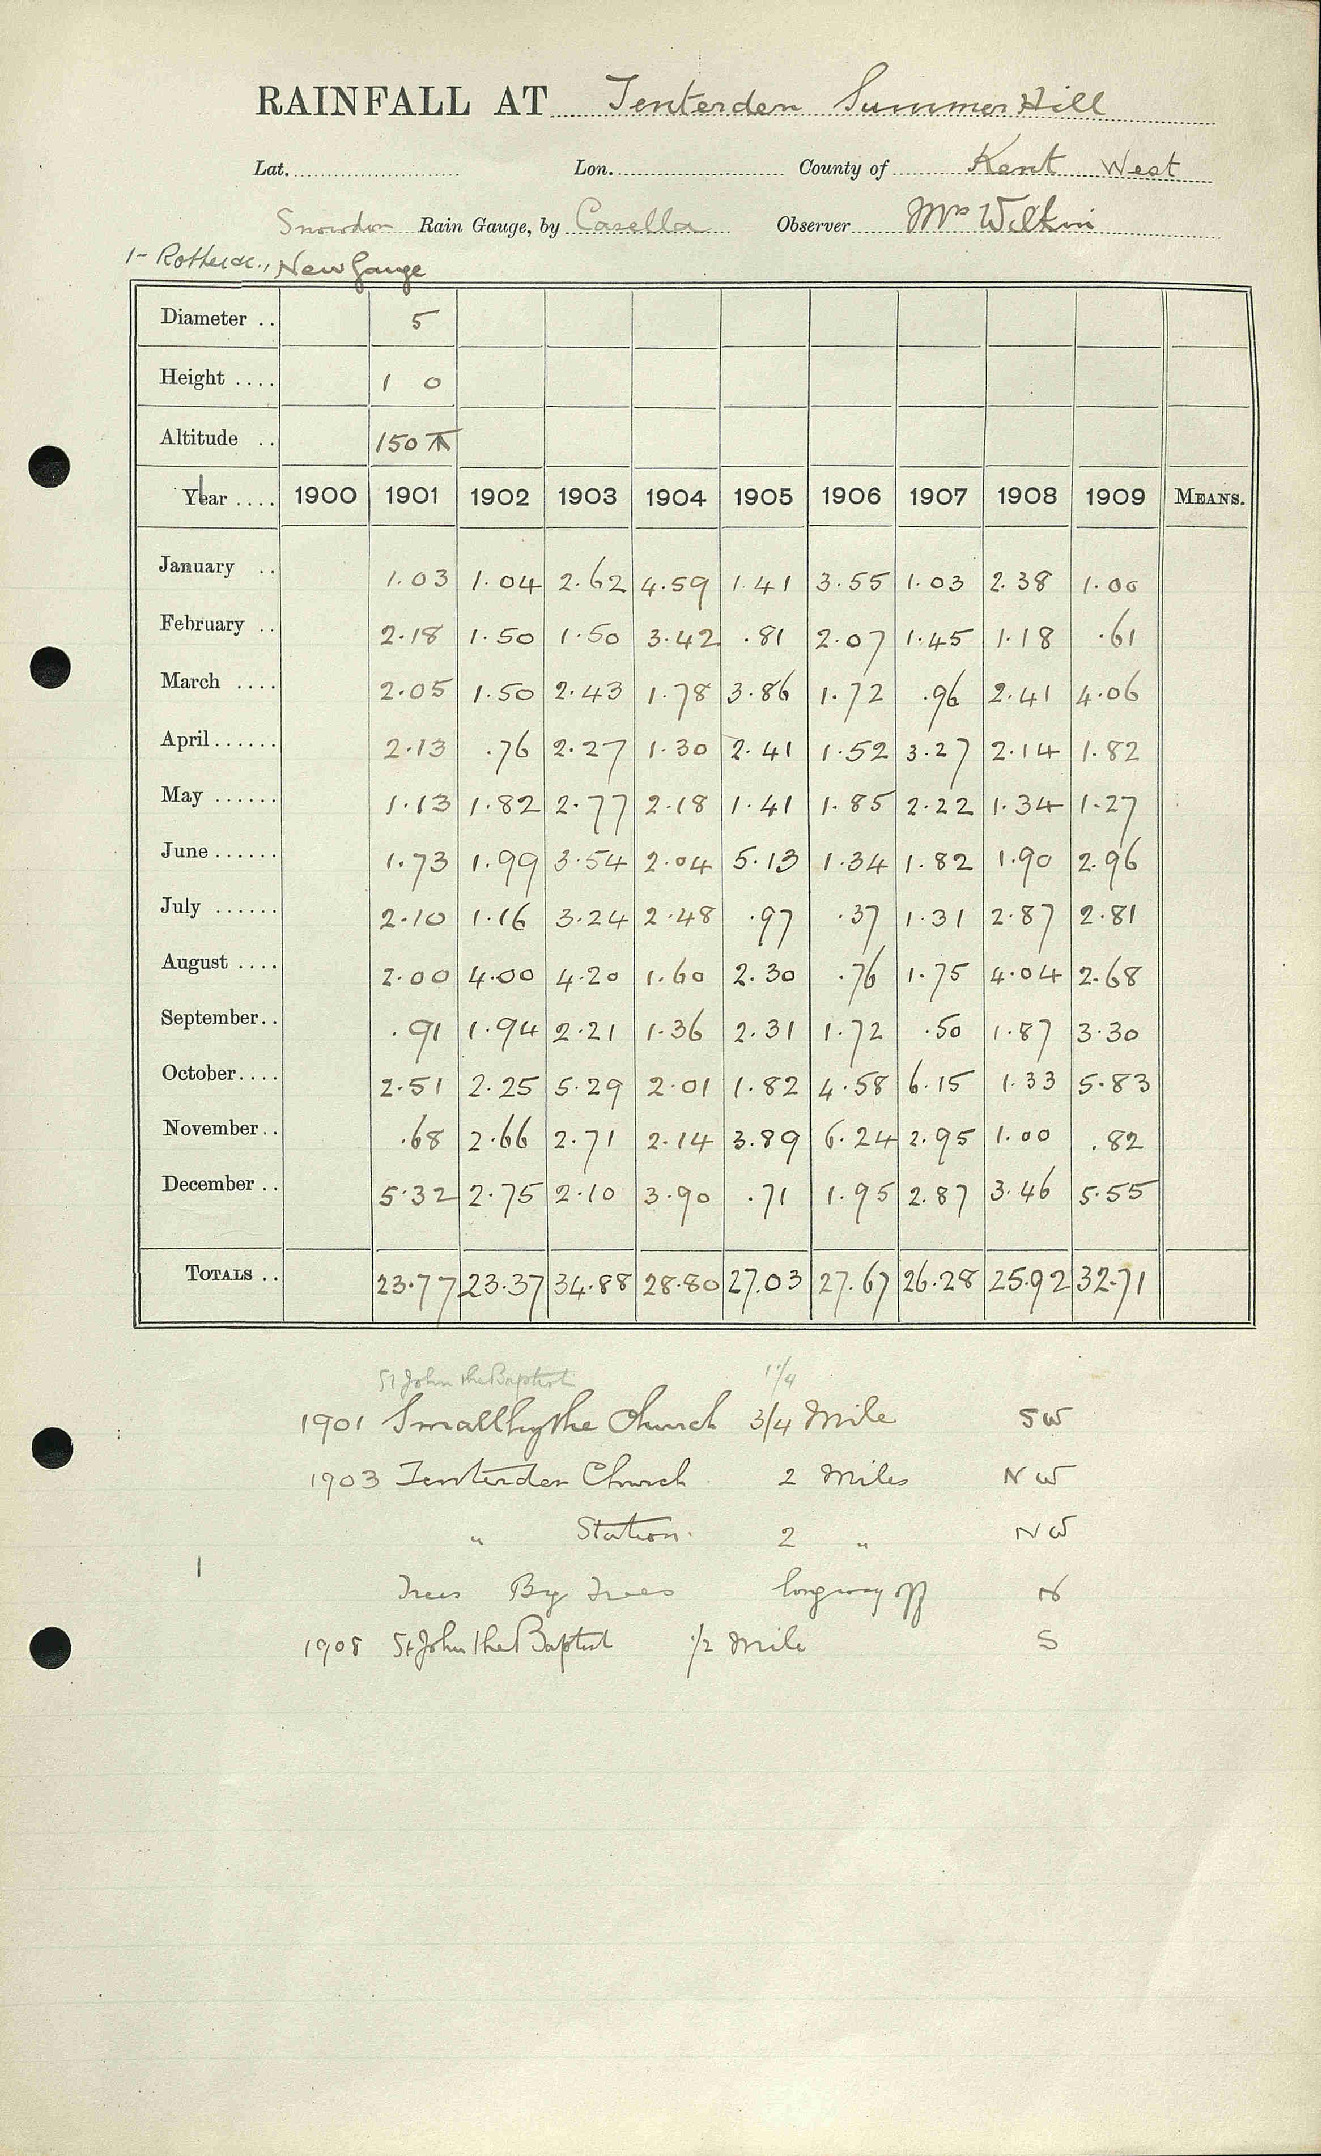 RAINFALL AT Tenterden Summer Hill
Lat. Lon. County of Kent West
Snowdon Rain Gauge, by Casella Observer Mrs Wilkin
New Gauge
Diameter .. 5
Height .... 1 0
Altitude .. 150
Year .... 1900 1901 1902 1903 1904 1905 1906 1907 1908 1909 MEANS.
January .. 1.03 1.04 2.62 4.59 1.41 3.55 1.03 2.38 1.00
February .. 2.18 1.50 1.50 3.42 .81 2.07 1.45 1.18 .61
March .... 2.05 1.50 2.43 1.78 3.86 1.72 .96 2.41 4.06
April...... 2.13 .76 2.27 1.30 2.41 1.52 3.27 2.14 1.82
May ...... 1.13 1.82 2.77 2.18 1.41 1.85 2.22 1.34 1.27
June...... 1.73 1.99 3.54 2.04 5.13 1.34 1.82 1.90 2.96
July ...... 2.10 1.16 3.24 2.48 .97 .37 1.31 2.87 2.81
August .... 2.00 4.00 4.20 1.60 2.30 .76 1.75 4.04 2.68
September.. .91 1.94 2.21 1.36 2.31 1.72 .50 1.87 3.30
October.... 2.51 2.25 5.29 2.01 1.82 4.58 6.15 1.33 5.83
November.. .68 2.66 2.71 2.14 3.89 6.24 2.95 1.00 .82
December .. 5.32 2.75 2.10 3.90 .71 1.95 2.87 3.46 5.55
TOTALS .. 23.77 23.37 34.88 28.80 27.03 27.67 26.28 25.92 32.71
St John the Baptist 1 1/4
1901 Smallhythe Church 3/4 Mile SW
1903 Tenterden Church 2 Miles NW
" Station 2 " NW
Trees Big Trees long way off N
1908 St John the Baptist 1/2 Mile S